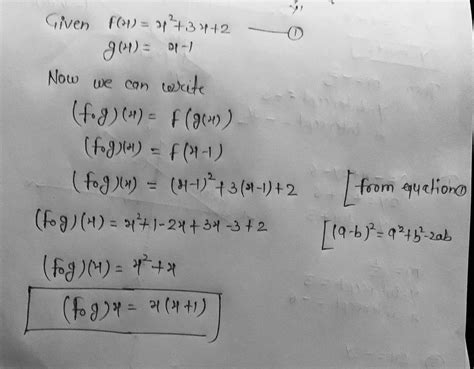 Given f(x) = x²+3x+2 —— ①
g(x) = x-1
Now we can write
(fog)(x) = f(g(x))
(fog)(x) = f(x-1)
(fog)(x) = (x-1)²+3(x-1)+2 [from equation①
(fog)(x) = x²+1-2x+3x-3+2 [(a-b)²=a²+b²-2ab
(fog)(x) = x²+x
(fog)x = x(x+1)